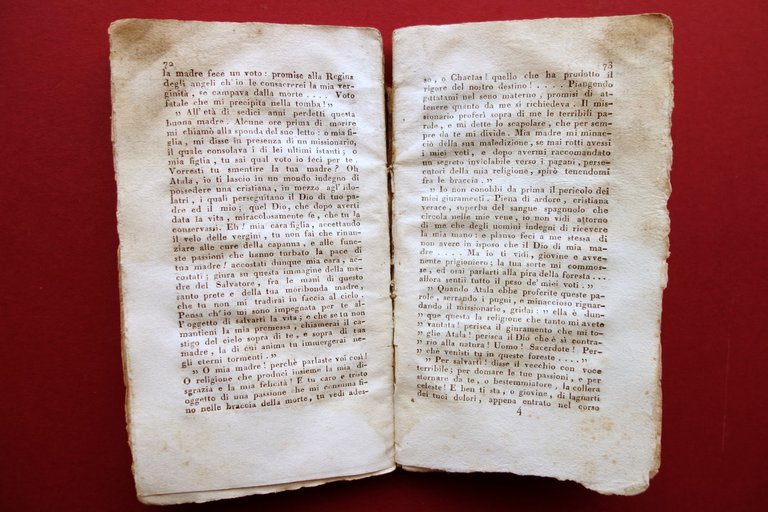 72
la madre fece un voto: promise alla Regina
degli angeli ch'io le consacrerei la mia ver-
ginità, se campava dalla morte .... Voto
fatale che mi precipita nella tomba! "
" All'età di sedici anni perdetti questa
buona madre. Alcune ore prima di morire
mi chiamò alla sponda del suo letto: o mia fi-
glia, mi disse in presenza di un missionario,
il quale consolava i di lei ultimi istanti; o
mia figlia, tu sai qual voto io feci per te.
Vorresti tu smentire la tua madre? Oh
Atala, io ti lascio in un mondo indegno di
possedere una cristiana, in mezzo agl'ido-
latri, i quali perseguitano il Dio di tuo pa-
dre ed il mio; quel Dio, che dopo averti
data la vita, miracolosamente fe, che tu la
conservassi. Eh! mia cara figlia, accettando
il velo delle vergini, tu non fai che rinun-
ziare alle cure della capanna, e alle fune-
ste passioni che hanno turbato la pace di
tua madre! accostati dunque mia cara, ac-
costati; giura su questa immagine della ma-
dre del Salvatore, fra le mani di questo
santo prete e della tua moribonda madre,
che tu non mi tradirai in faccia al cielo.
Pensa ch'io mi sono impegnata per te al-
l'oggetto di salvarti la vita; e che se tu non
mantieni la mia promessa, chiamerai il ca-
stigo del cielo sopra di te, e sopra di tua
madre, la di cui anima tu immergerai ne-
gli eterni tormenti. "
" O mia madre! perchè parlaste voi così!
O religione che produci insieme la mia di-
sgrazia e la mia felicità! E tu caro e tristo
oggetto di una passione che mi consuma fi-
no nelle braccia della morte, tu vedi ades-
73
so, o Chactas! quello che ha prodotto il
rigore del nostro destino! .... Piangendo
gittatami nel seno materno, promisi di at-
tenere quanto da me si richiedeva. Il mis-
sionario proferì sopra di me le terribili pa-
role, e mi dette lo scapolare, che per sem-
pre da te mi divide. Mia madre mi minac-
ciò della sua maledizione, se mai rotti avessi
i miei voti, e dopo avermi raccomandato
un segreto inviolabile verso i pagani, perse-
cutori della mia religione, spirò tenendomi
fra le braccia. "
" Io non conobbi da prima il pericolo dei
miei giuramenti. Piena di ardore, cristiana
verace, superba del sangue spagnuolo che
circola nelle mie vene, io non vidi attorno
di me che degli uomini indegni di ricevere
la mia mano: e plauso feci a me stessa di
non avere in isposo che il Dio di mia ma-
dre .... Ma io ti vidi, giovine e avve-
nente prigioniero; la tua sorte mi commos-
se, ed osai parlarti alla pira della foresta...
allora sentii tutto il peso de' miei voti. "
" Quando Atala ebbe proferite queste pa-
role, serrando i pugni, e minaccioso riguar-
dando il missionario, gridai: ella è dun-
que questa la religione che tanto mi avete
vantata! perisca il giuramento che mi to-
glie Atala! perisca il Dio che è sì contra-
rio alla natura! Uomo! Sacerdote! Per-
chè venisti tu in queste foreste .... "
" Per salvarti! disse il vecchio con voce
terribile; per domare le tue passioni, e per
stornare da te, o bestemmiatore, la collera
celeste! E ben ti sta, o giovine, di lagnarti
dei tuoi dolori, appena entrato nel corso
4